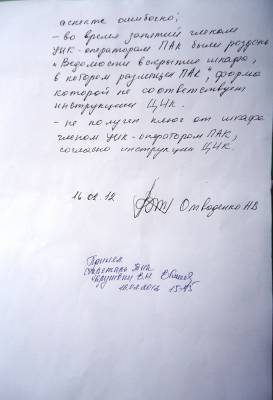 аспекте ошибочно;
- во время занятий членам
УИК-операторам ПАК были розданы
"Ведомости вскрытия шкафа,
в котором размещен ПАК", форма
которой не соответствует
инструкции ЦИК.
- не получен ключ от шкафа
членом УИК-оператором ПАК,
согласно инструкции ЦИК.
16.02.12 Отводенко НВ
Принял
секретарь ТИК